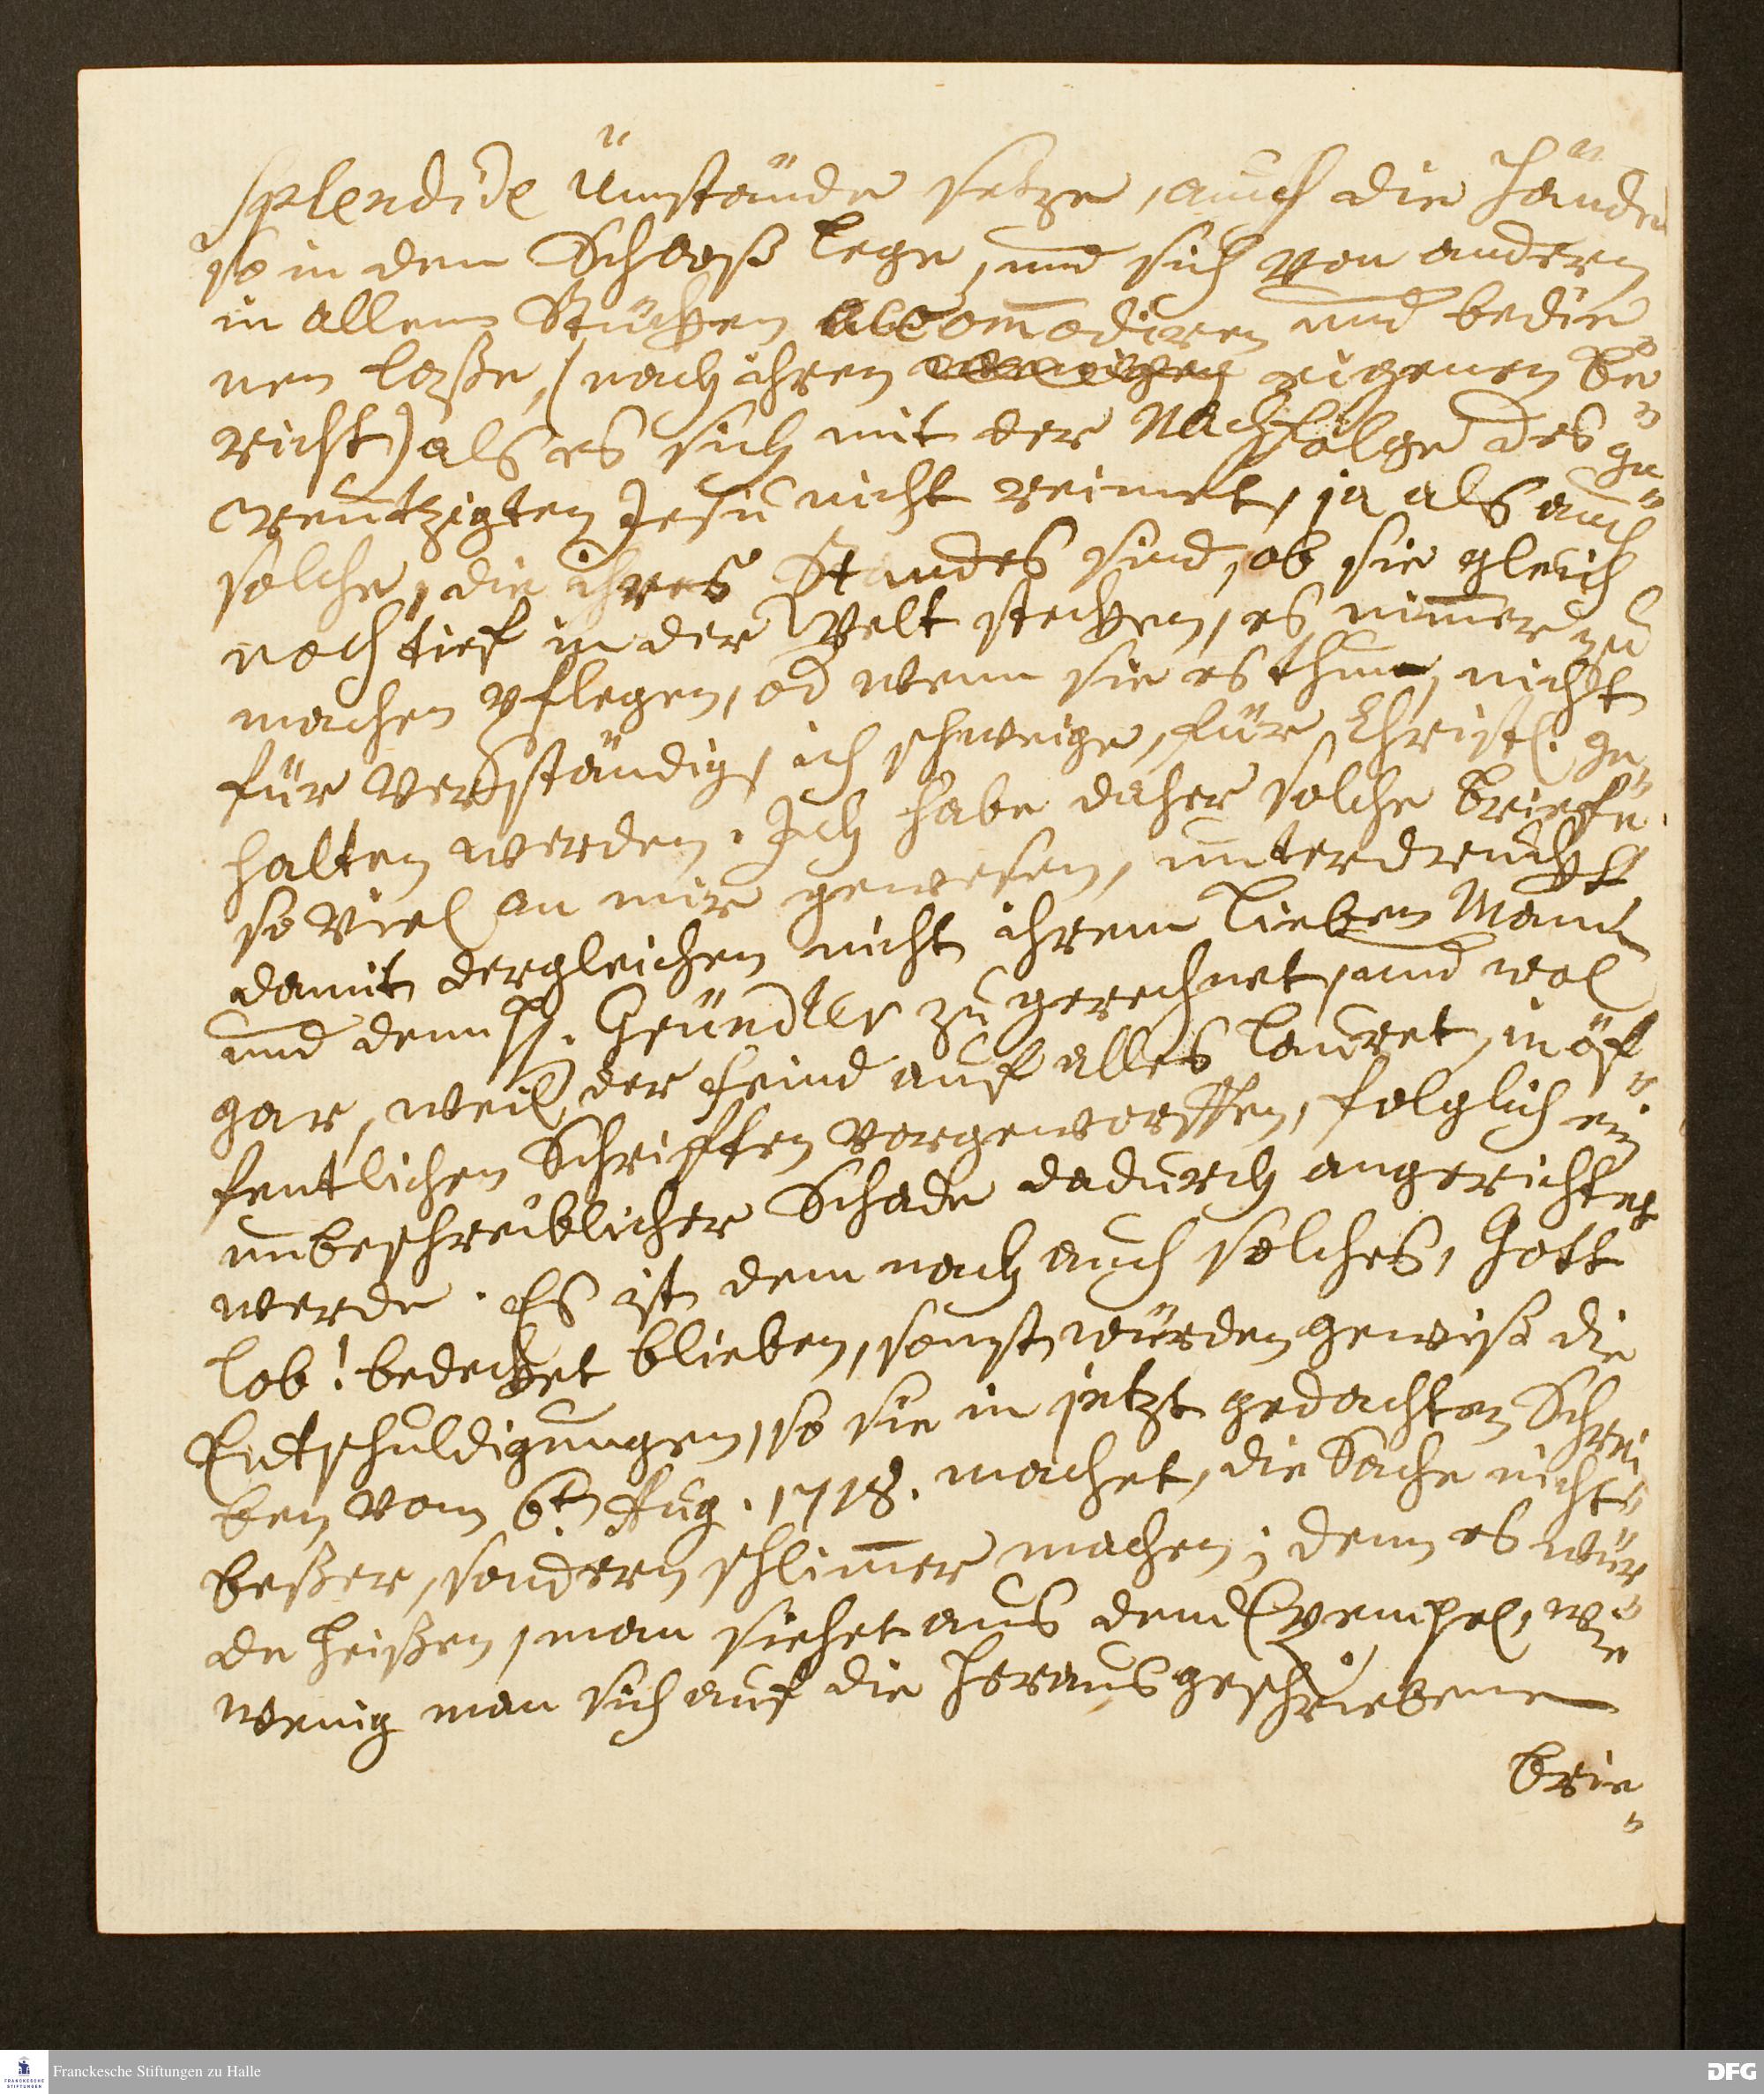 splendide Umstände setze, auch die Hände
so in dem Schooß lege, und sich von andern
in allem Stücken accom̄odiren und bedie-
nen laße, (nach ihren eigenen Be-
richt) als es sich mit der Nachfolge des ge-
creutzigten Jesu nicht reimet, ja als auch
solche, die ihres Standes sind, ob sie gleich
noch tief in der Welt stecken, es nim̄er zu
machen pflegen, od wenn sie es thun, nicht
für verständig, ich schweige, für Christl. ge-
halten werden. Ich habe daher solche Briefe,
so viel an mir gewesen, unterdruckt,
damit dergleichen nicht ihrem lieben Mann
und dem H. Gründler zugerechnet, und wol
gar, weil der Feind auf alles lauret, in öf-
fentlichen Schrifften vorgeworffen, folglich ein
unbeschreiblicher Schade dadurch angerichtet
werde. Es ist dem nach auch solches, Gott
lob! bedecket blieben, sonst würden gewiß die
Entschuldigungen, so sie in jetzt gedachten Schrei-
ben vom 6t. Aug. 1718. machet, die Sache nicht
beßer, sondern schlim̄er machen; denn es wür-
de heißen, man siehet aus dem Exempel, wie
wenig man sich auf die herausgeschriebene
Brie-
Franckesche Stiftungen zu Halle
FRANCKESCHE
STIFTUNGEN
DFG